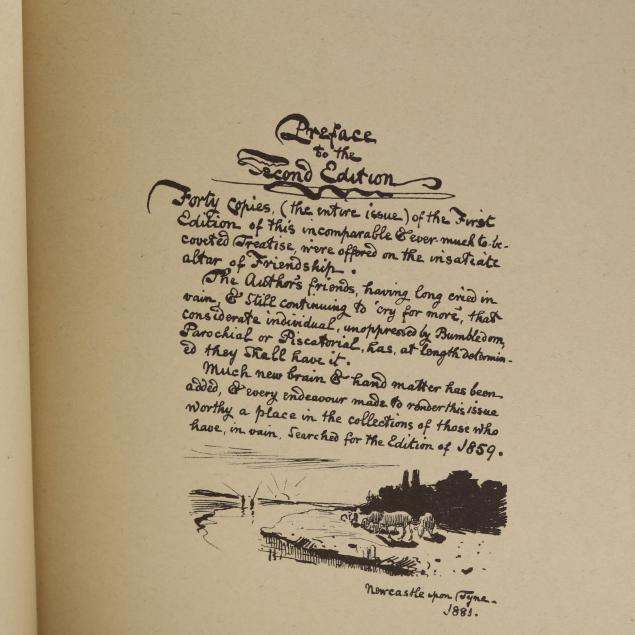 Preface
to the
Second Edition
Forty Copies, (the entire issue) of the First
Edition of this incomparable & ever-much-to-be-
coveted Treatise, were offered on the insatiate
altar of Friendship.
The Author's friends, having long cried in
vain, & still continuing to "cry for more", that
considerate individual, unoppressed by Bumbledom,
Parochial or Piscatorial, has, at length determin-
ed they shall have it.
Much new brain & hand matter has been
added, & every endeavour made to render this issue
worthy a place in the collections of those who
have, in vain, searched for the Edition of 1859.
Newcastle upon Tyne.
1881.